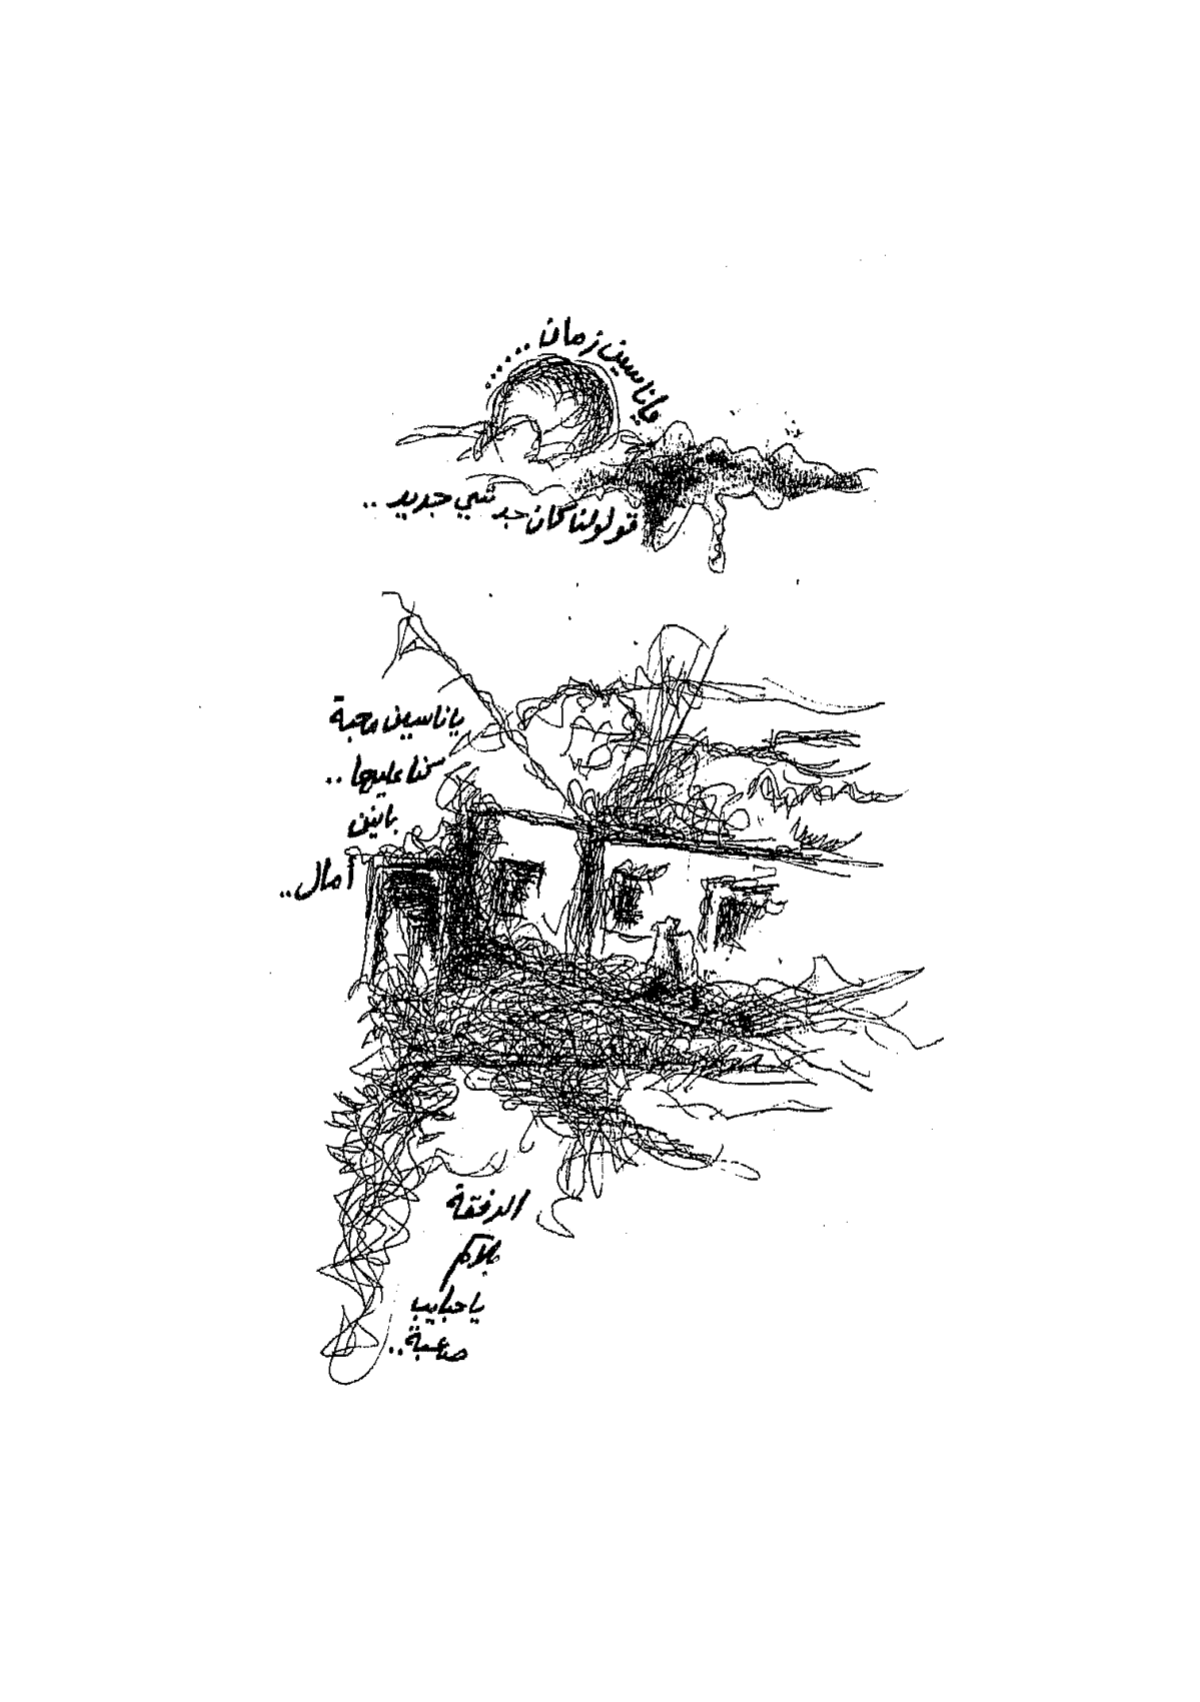 ياناسين زمان .....
قولولنا كان جد شي جديد ..
ياناسين محبة
كنا عليها ..
بانين
أمال ..
الرفقة
بلاكم
يا حبايب
صاعبة ..